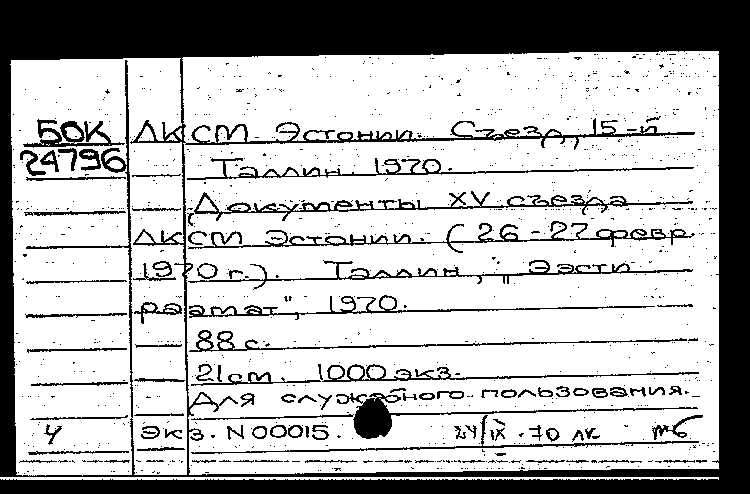 50К ЛКСМ Эстонии. Съезд, 15-й
24796 Таллин. 1970.
Документы XV съезда
ЛКСМ Эстонии. (26-27 февр.
1970 г.). Таллин, "Ээсти
раамат", 1970.
88 с.
21 cm. 1000 экз.
Для служебного пользования.
Экз. N 00015. 24/IX-70 лк